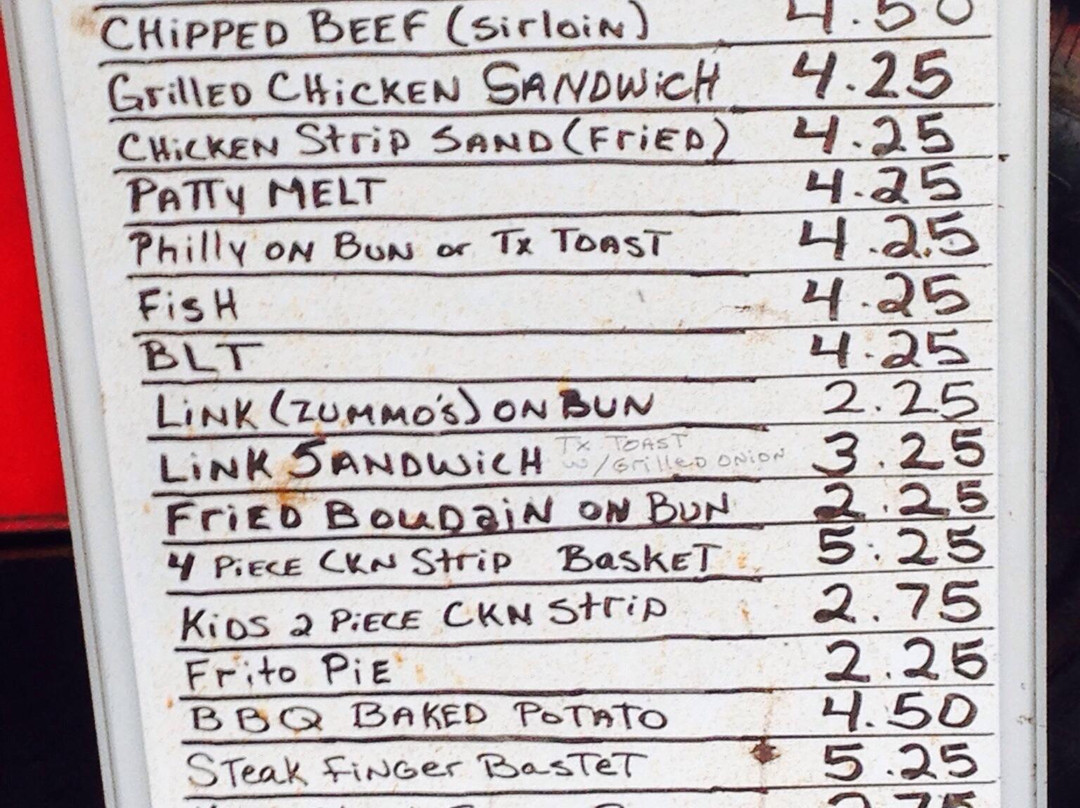 CHiPPED BEEF (Sirloin) 4.50
GrillED CHiCKEN SANDWiCH 4.25
CHiCKEN Strip SAND (FriED) 4.25
PATTY MELT 4.25
Philly ON BUN or Tx TOAST 4.25
FisH 4.25
BLT 4.25
LiNK (ZUMMO'S) ON BUN 2.25
LiNK SANDWiCH Tx TOAST w/GrillED ONION 3.25
FriED BouDaiN ON BUN 2.25
4 PiECE CKN Strip BasKET 5.25
KiDS 2 PiECE CKN Strip 2.75
Frito PiE 2.25
BBQ BAKED POTATO 4.50
STeak FiNGer BasTeT 5.25